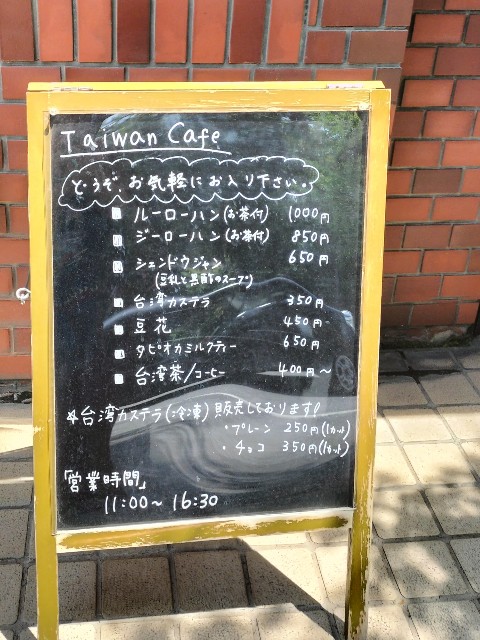 Taiwan Cafe
どうぞ、お気軽にお入り下さい。
ルーローハン(お茶付) 1000円
ジーローハン(お茶付) 850円
シェンドウジャン 650円
(豆乳と黒酢のスープ)
台湾カステラ 350円
豆花 450円
タピオカミルクティー 650円
台湾茶/コーヒー 400円〜
☆台湾カステラ(冷凍)販売しております!
・プレーン 250円(1カット)
・チョコ 350円(1カット)
「営業時間」
11:00〜16:30